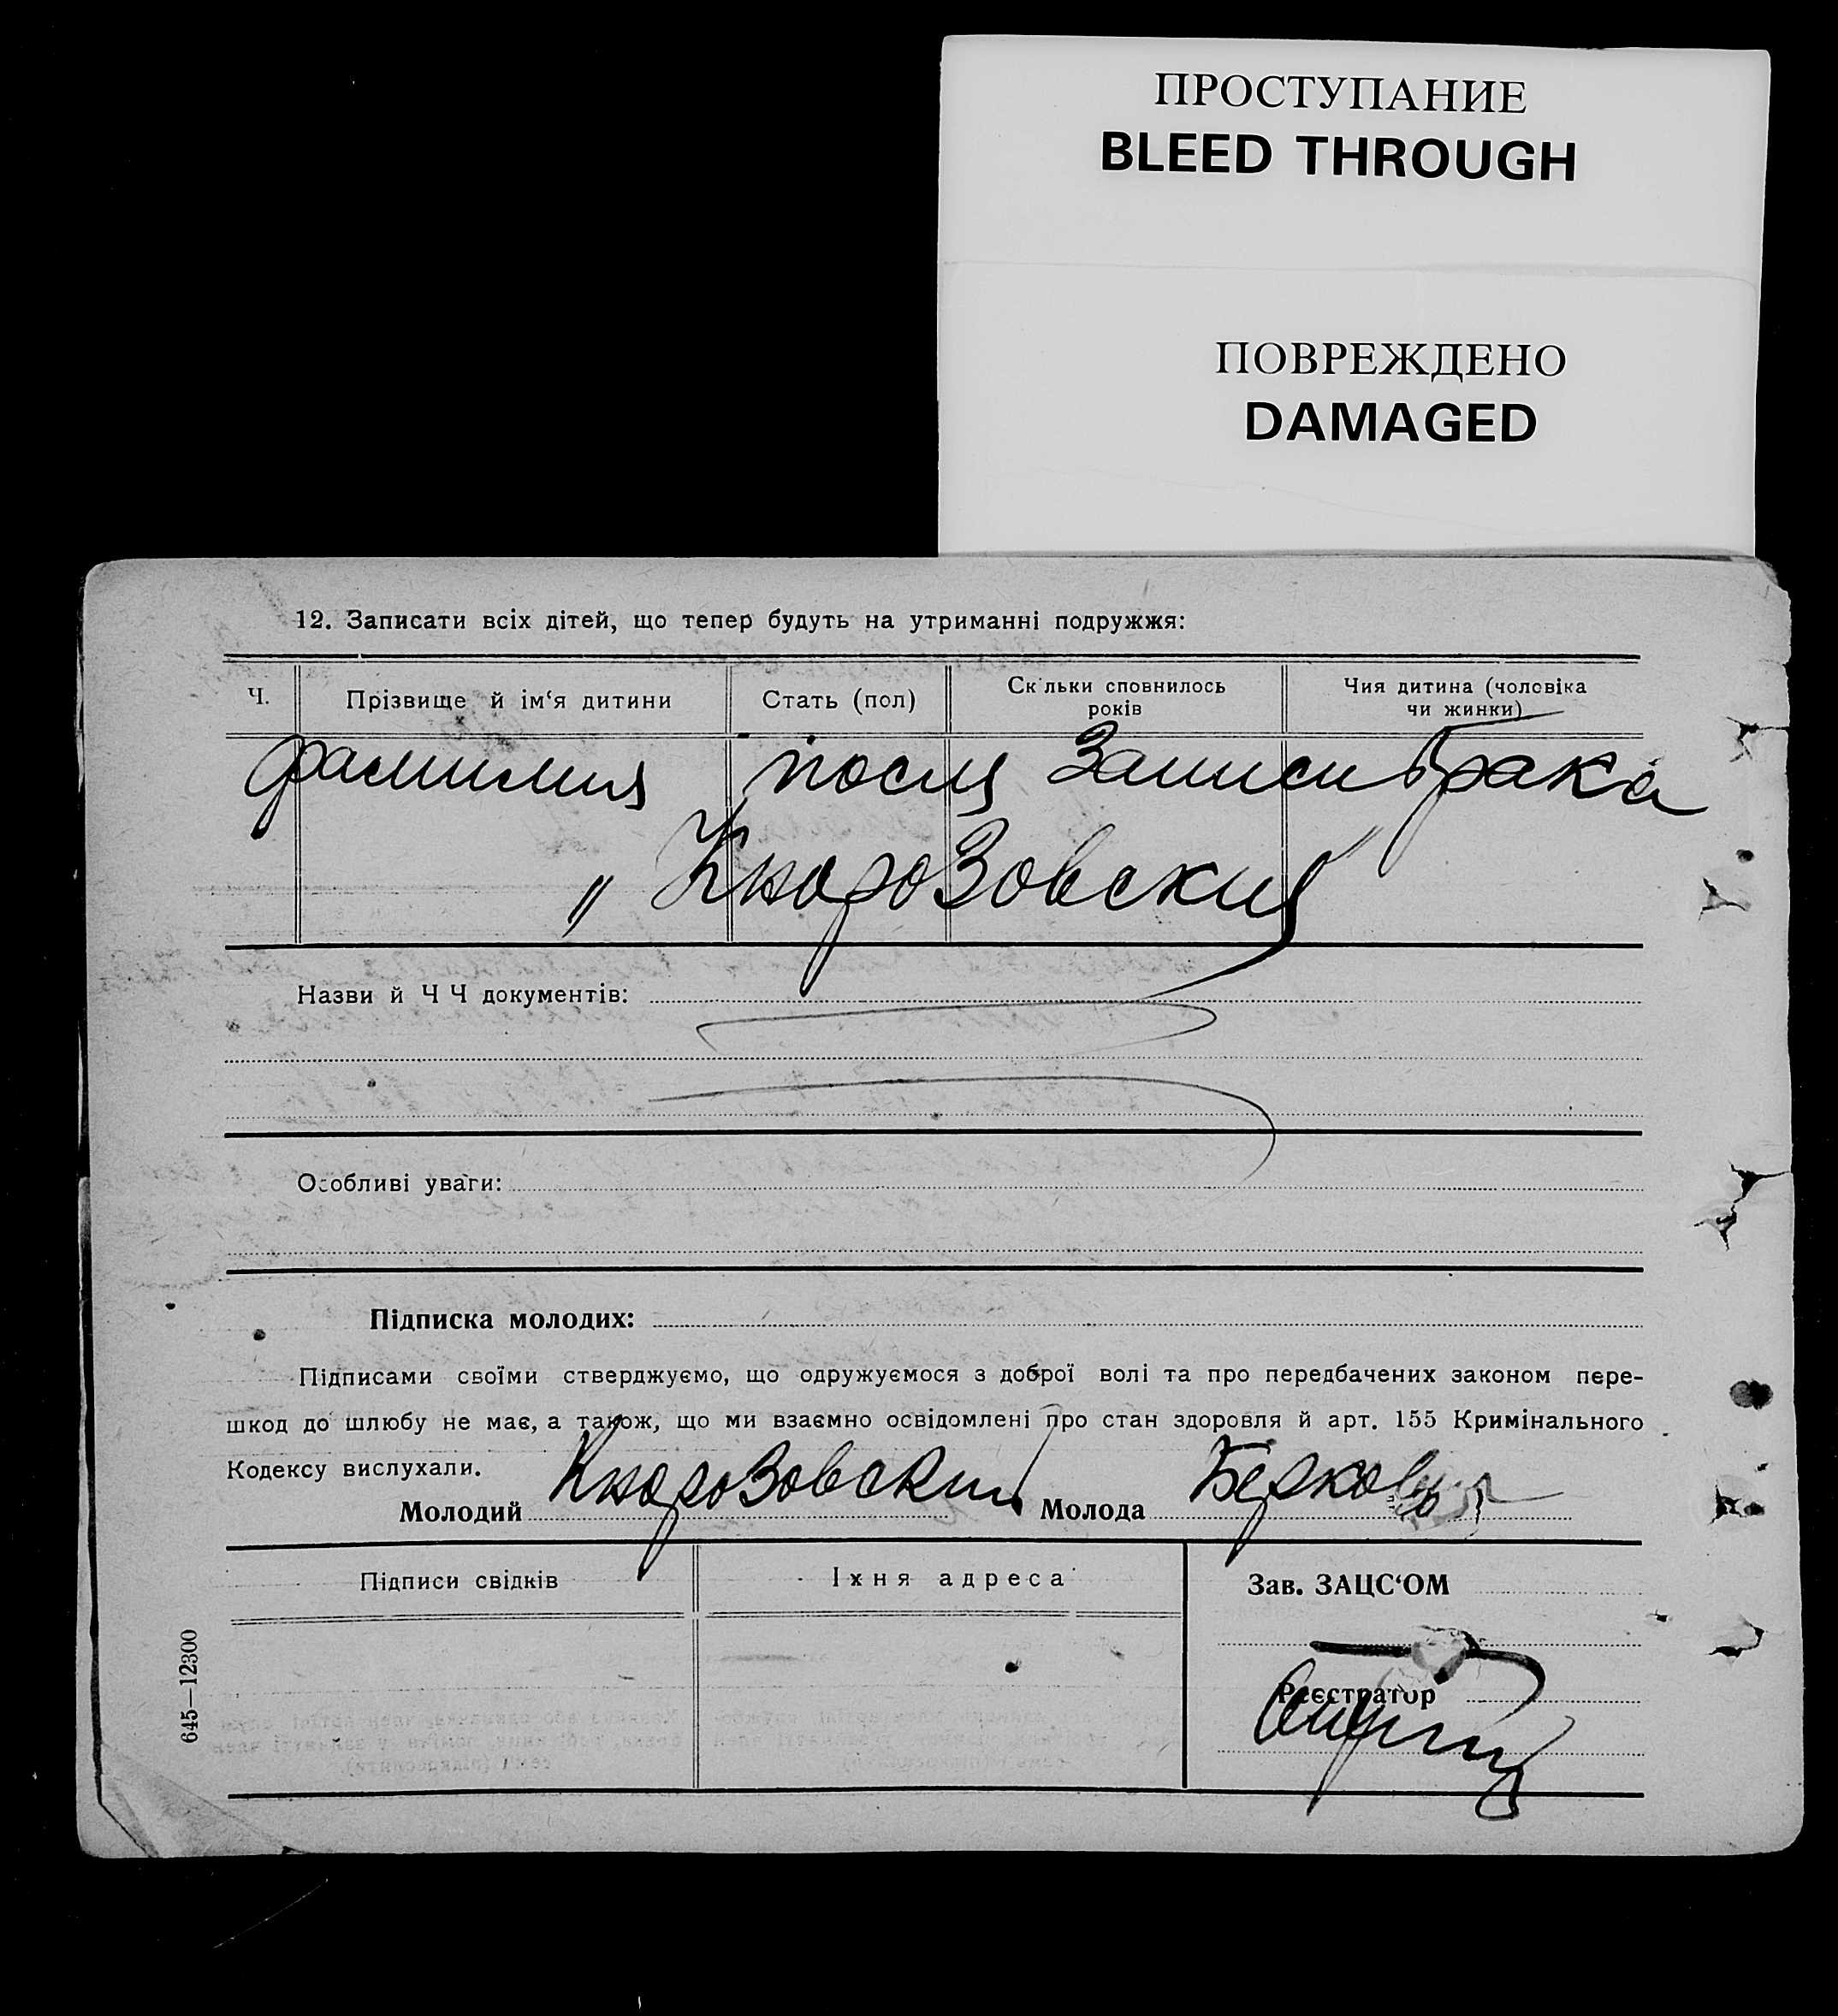 ПРОСТУПАНИЕ
BLEED THROUGH
ПОВРЕЖДЕНО
DAMAGED
12. Записати всіх дітей, що тепер будуть на утриманні подружжя:
Ч.
Прізвище й ім‘я дитини
Стать (пол)
Скільки сповнилось
років
Чия дитина (чоловіка
чи жинки)
фамилия после Записи брака
„ Кнорозовский “
Назви й Ч Ч документів:
Особливі уваги:
Підписка молодих:
Підписами своїми стверджуємо, що одружуємося з доброї волі та про передбачених законом пере-
шкод до шлюбу не має, а також, що ми взаємно освідомлені про стан здоровля й арт. 155 Кримінального
Кодексу вислухали.
Молодий Кнорозовский Молода
Підписи свідків
Їхня адреса
Зав. ЗАЦС‘ОМ
Реєстратор
645—12300